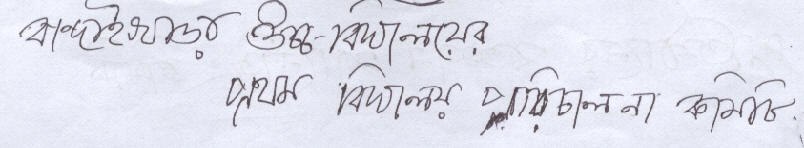 বান্দাইখাড়া উচ্চ বিদ্যালয়ের
প্রথম বিদ্যালয় পরিচালনা কমিটি.